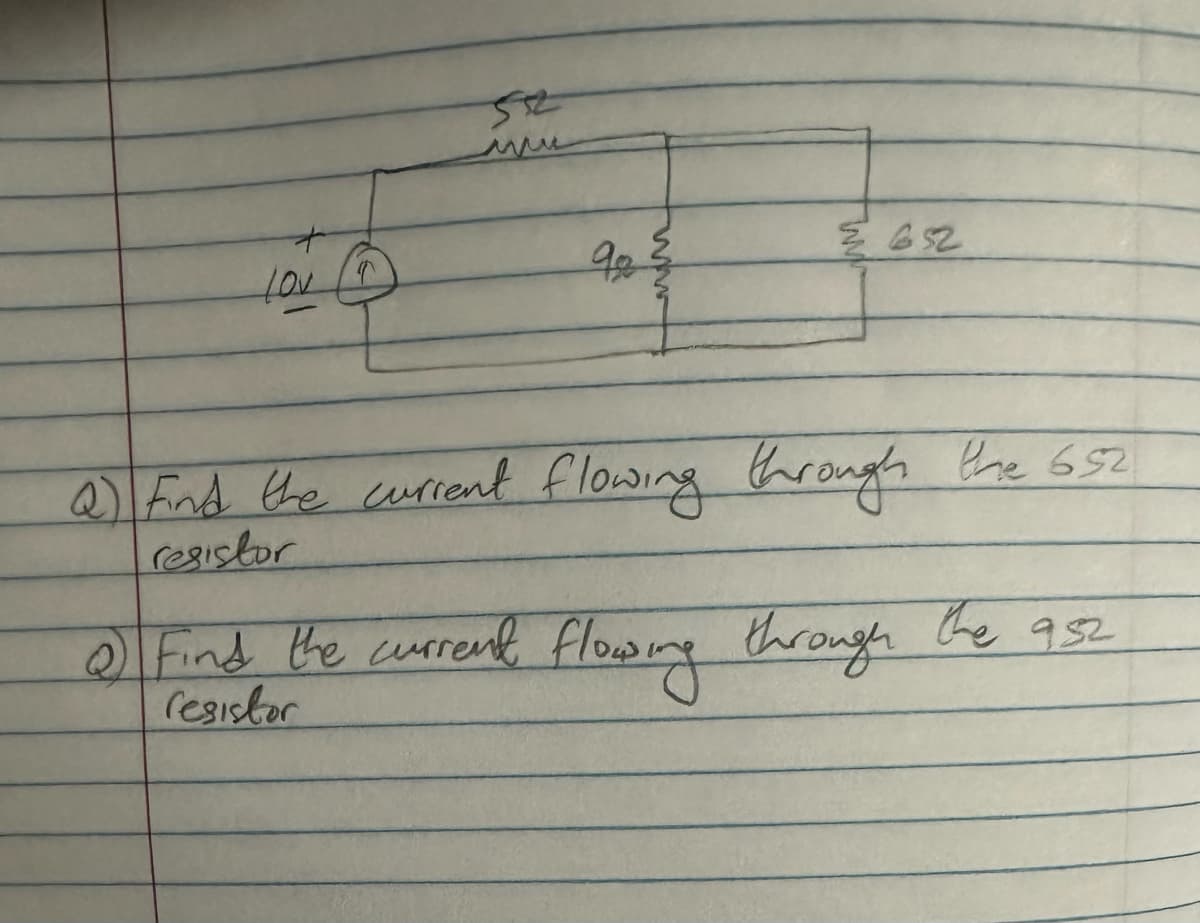 5Ω
+
10V
-
9Ω
6Ω
Q) Find the current flowing through the 6Ω
resistor
Q) Find the current flowing through the 9Ω
resistor